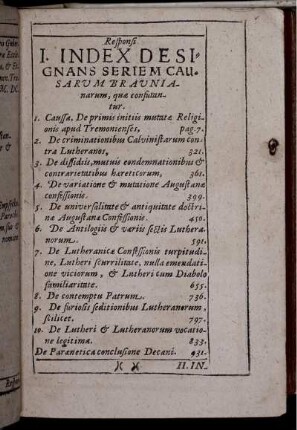 Responsi
I. INDEX DESI-
GNANS SERIEM CAU-
SARUM BRAUNIA-
narum, quæ confutan-
tur.
1. Caussa. De primis initiis mutatæ Religi-
onis apud Tremonienses, pag. 7.
2. De criminationibus Calvinistarum con-
tra Lutheranos, 321.
3. De dissidiis, mutuis condemnationibus &
contrarietatibus hæreticorum, 361.
4. De variatione & mutatione Augustanæ
confessionis. 399.
5. De universalitate & antiquitate doctri-
næ Augustanæ Confessionis. 450.
6. De Antilogiis & variis sectis Luthera-
norum. 591.
7. De Lutheranicæ Confessionis turpitudi-
ne, Lutheri scurrilitate, nulla emendati-
one viciorum, & Lutheri cum Diabolo
familiaritate. 655.
8. De contemptu Patrum. 736.
9. De furiosis seditionibus Lutheranorum,
scilicet. 797.
10. De Lutheri & Lutheranorum vocatio-
ne legitima. 833.
De Parænetica conclusione Decani. 931.
II. IN-